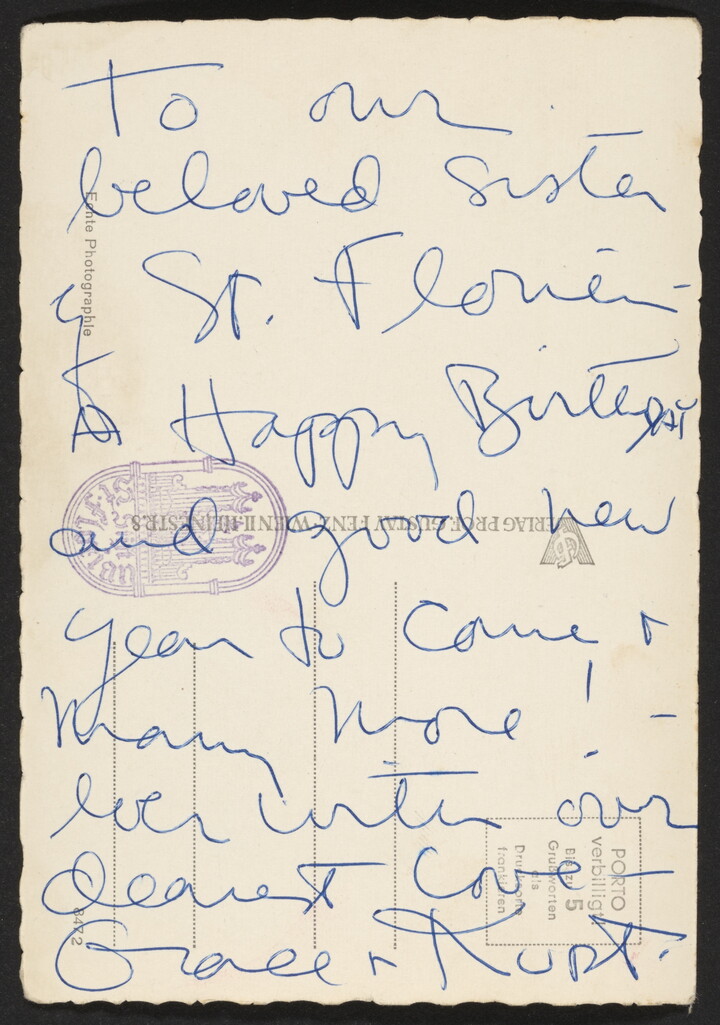 To our
beloved Sister
St. Florien-
Happy Birthday
and good new
year to come +
many more! -
ever with our
dearest love -
Grace + Kurt.
Echte Photographie
VERLAG PROF. GUSTAV FENZ, WIEN II HEINESTR 8
PORTO
verbilligt
Bis zu 5
Grußworten
als
Drucksorte
frankieren
8472